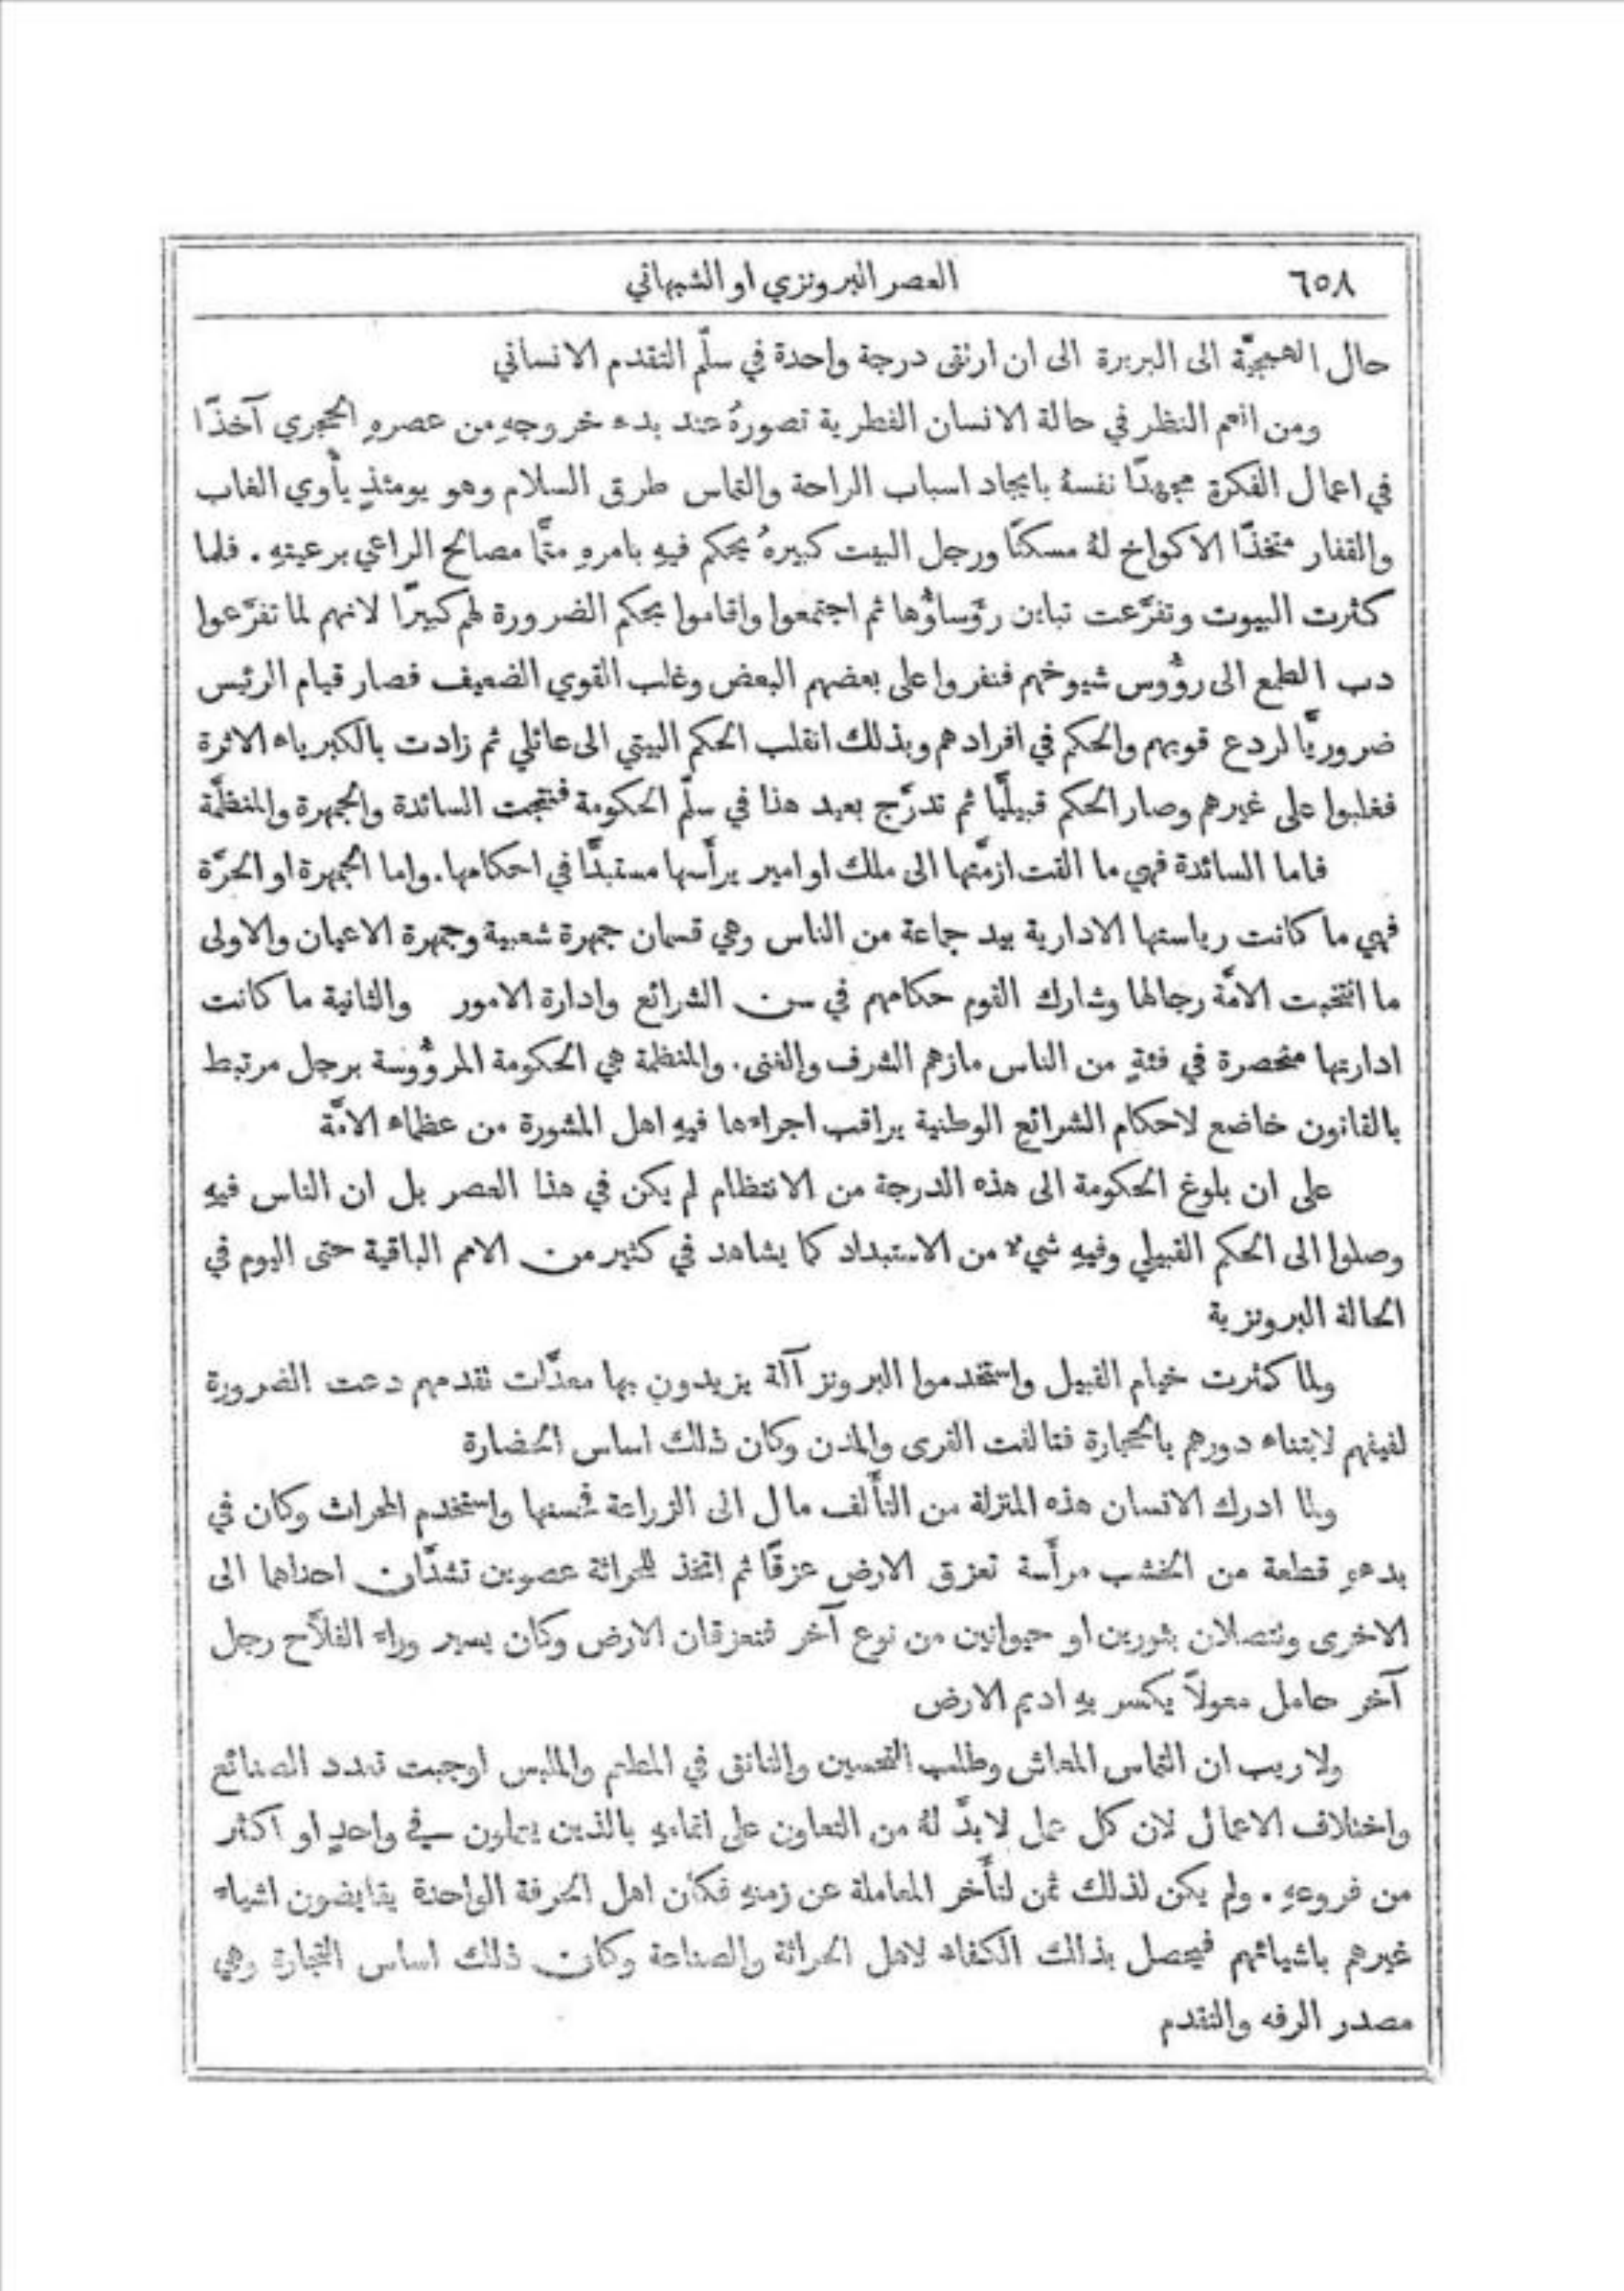 ٦٥٨
العصر البرونزي او الشبهاني
حال الهمجيَّة الى البربرة الى ان ارتقى درجة واحدة في سلّم التقدم الانساني
ومن انعم النظر في حالة الانسان الفطرية تصورهُ عند بدء خروجهِ من عصرهِ الحجري آخذًا
في اعمال الفكرة مجهدًا نفسهُ بايجاد اسباب الراحة والتماس طرق السلام وهو يومئذٍ يأوي الغاب
والقفار متخذًا الاكواخ لهُ مسكنًا ورجل البيت كبيرهُ يحكم فيهِ بامرهِ متمًّا مصالح الراعي برعيتهِ . فلما
كثرت البيوت وتفرَّعت تباين رؤساؤُها ثم اجتمعوا واقاموا بحكم الضرورة لهم كبيرًا لانهم لما تفرَّعوا
دب الطمع الى رؤُوس شيوخهم فنفروا على بعضهم البعض وغلب القوي الضعيف فصار قيام الرئيس
ضروريًّا لردع قويهم والحكم في افرادهم وبذلك انقلب الحكم البيتي الى عائلي ثم زادت بالكبرياء الاثرة
فغلبوا على غيرهم وصار الحكم قبيليًّا ثم تدرَّج بعيد هذا في سلّم الحكومة فنتجت السائدة والجمهرة والمنظَّمة
فاما السائدة فهي ما القت ازمَّتها الى ملك او امير يرأَسها مستبدًّا في احكامها . واما الجمهرة او الحرَّة
فهي ما كانت رياستها الادارية بيد جماعة من الناس وهي قسمان جمهرة شعبية وجمهرة الاعيان والاولى
ما انتخبت الامَّة رجالها وشارك القوم حكامهم في سن الشرائع وادارة الامور والثانية ما كانت
ادارتها منحصرة في فئةٍ من الناس مازهم الشرف والغنى . والمنظمة هي الحكومة المرؤُوسة برجل مرتبط
بالقانون خاضع لاحكام الشرائع الوطنية يراقب اجراءها فيهِ اهل المشورة من عظماء الامَّة
على ان بلوغ الحكومة الى هذه الدرجة من الانتظام لم يكن في هذا العصر بل ان الناس فيهِ
وصلوا الى الحكم القبيلي وفيهِ شيءٌ من الاستبداد كما يشاهد في كثير من الامم الباقية حتى اليوم في
الحالة البرونزية
ولما كثرت خيام القبيل واستخدموا البرونز آلة يزيدون بها معدَّات تقدمهم دعت الضرورة
لفيفهم لابتناء دورهم بالحجارة فتالفت القرى والمدن وكان ذلك اساس الحضارة
ولما ادرك الانسان هذه المنزلة من التأَلف مال الى الزراعة فحسنها واستخدم المحراث وكان في
بدءهِ قطعة من الخشب مرأَسة تعزق الارض عزقًا ثم اتخذ للحراثة عصوين تشدَّان احداهما الى
الاخرى وتتصلان بثورين او حيوانين من نوع آخر فتعزقان الارض وكان يسير وراء الفلاَّح رجل
آخر حامل معولاً يكسر بهِ اديم الارض
ولا ريب ان التماس المعاش وطلب التحسين والتانق في المطعم والملبس اوجبت تعدد الصنائع
واختلاف الاعمال لان كل عمل لا بدَّ لهُ من التعاون على اتمامهِ بالذين يعملون في واحدٍ او اكثر
من فروعهِ . ولم يكن لذلك ثمن لتأَخر المعاملة عن زمنهِ فكان اهل الحرفة الواحدة يقايضون اشياء
غيرهم باشيائهم فيحصل بذلك الكفاء لاهل الحراثة والصناعة وكان ذلك اساس التجارة وهي
مصدر الرفه والتقدم